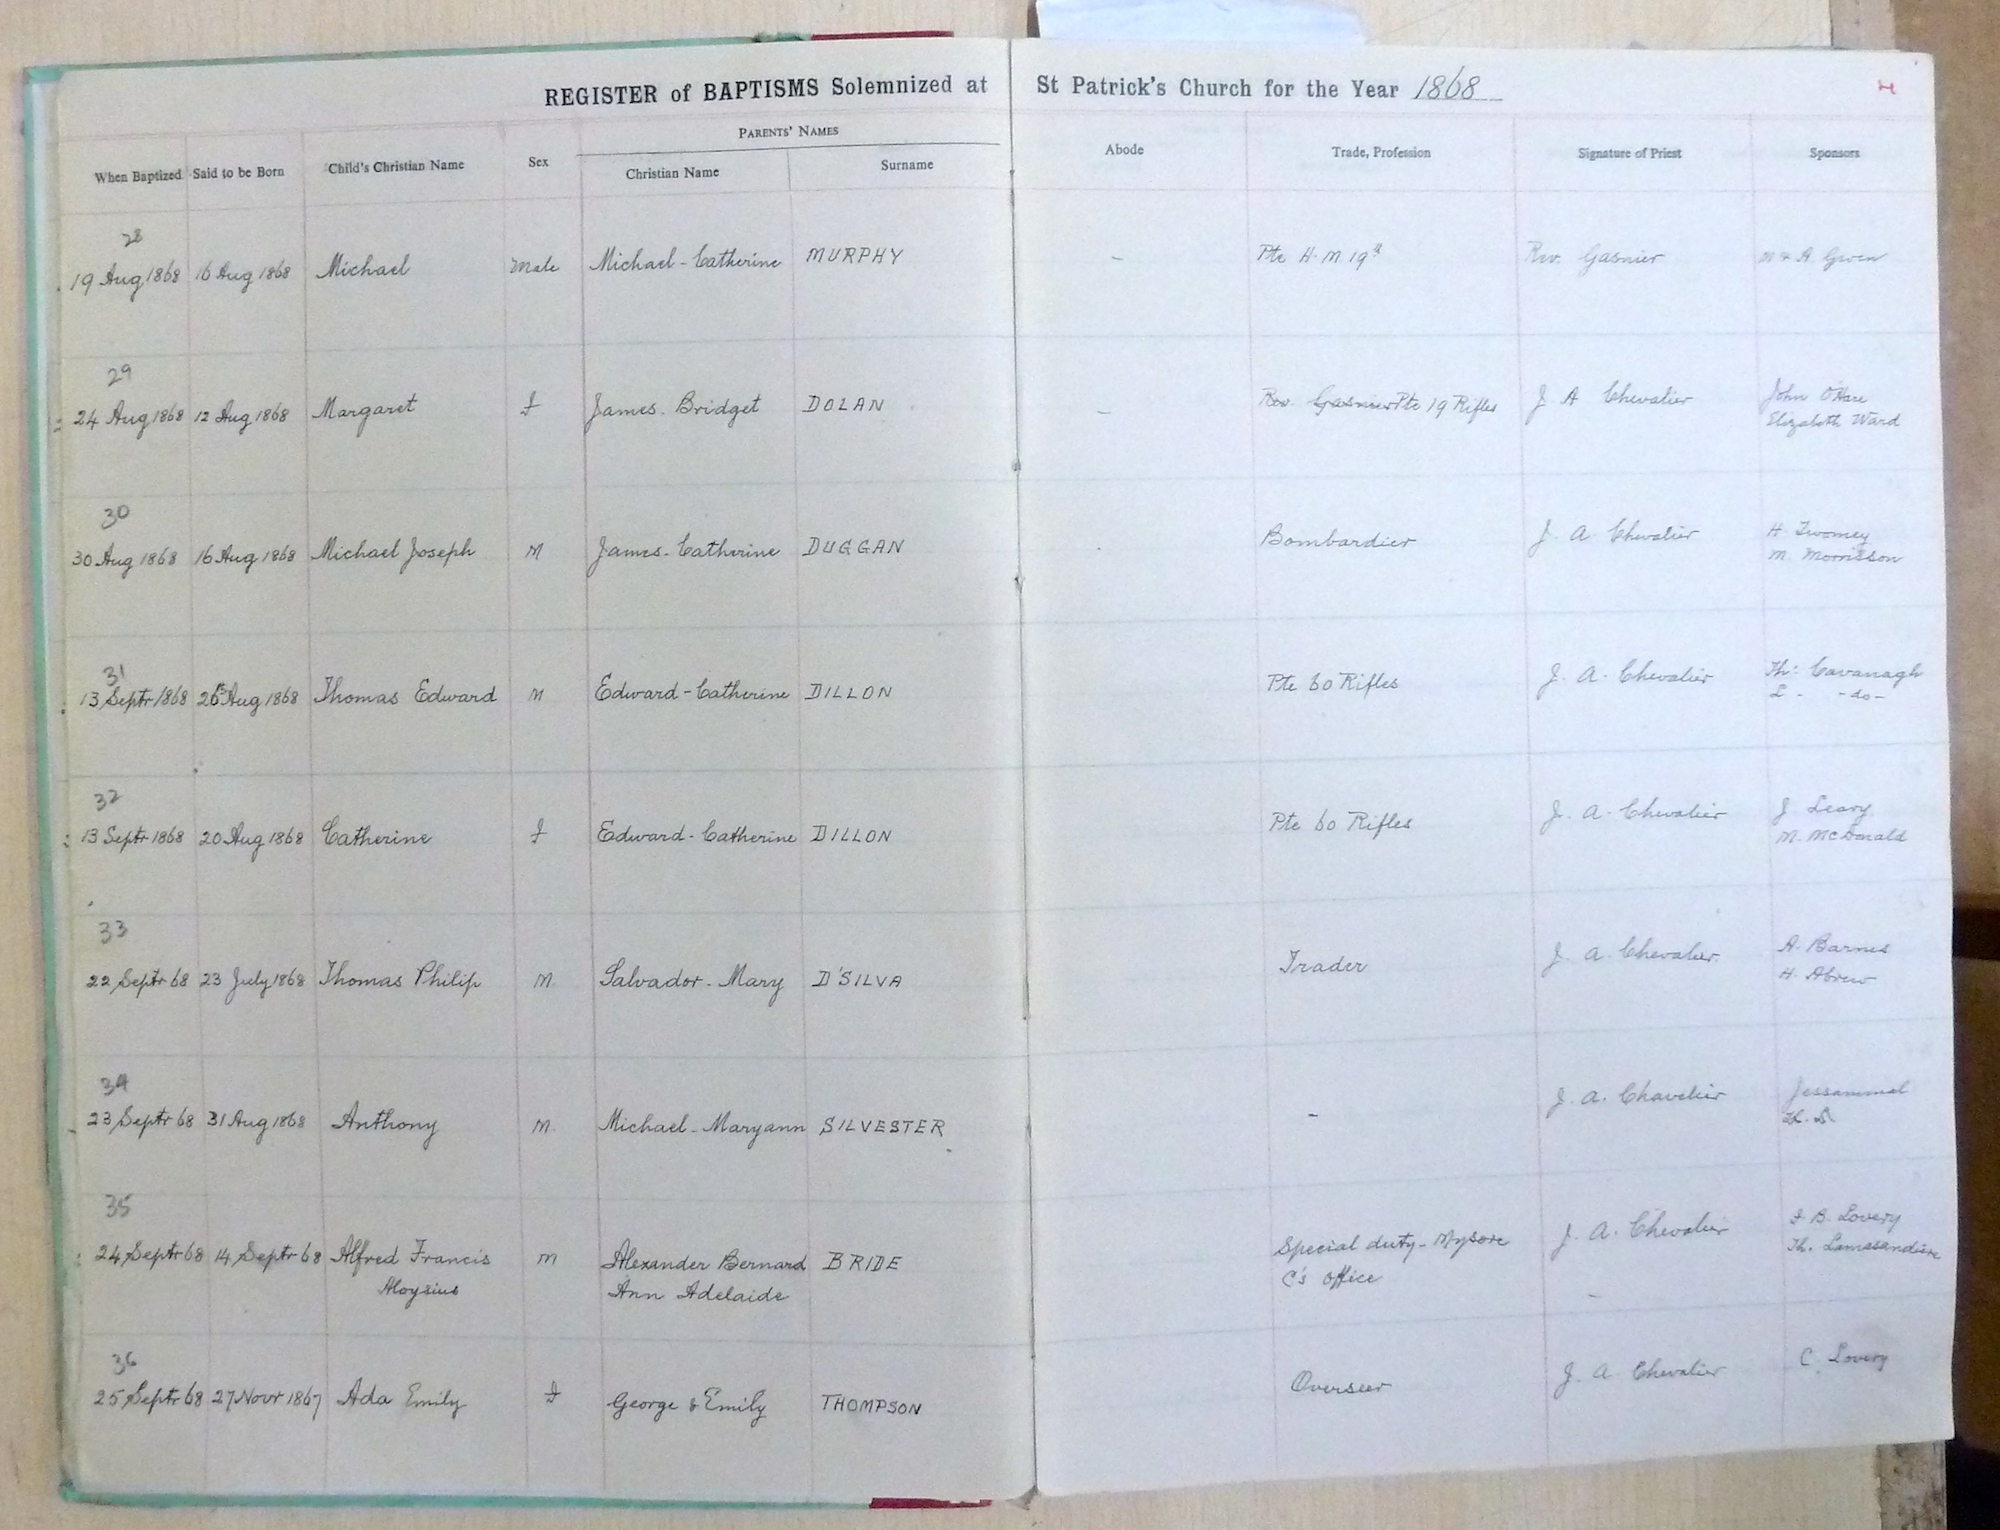 REGISTER of BAPTISMS Solemnized at St Patrick's Church for the Year 1868
When Baptized Said to be Born Child's Christian Name Sex PARENTS' NAMES Christian Name Surname Abode Trade, Profession Signature of Priest Sponsors
28
19 Aug 1868 16 Aug 1868 Michael Male Michael - Catherine MURPHY - Pte H.M 19th Rev. Gasnier
29
24 Aug 1868 12 Aug 1868 Margaret F James. Bridget DOLAN - Rev. Gasnier Pte 19 Rifles J A Chevalier John O'Hare
Elizabeth Ward
30
30 Aug 1868 16 Aug 1868 Michael Joseph M James. Catherine DUGGAN Bombardier J. A. Chevalier H. Twomey
M. Morrisson
31
13 Septr 1868 Aug 1868 Thomas Edward M Edward - Catherine DILLON Pte 60 Rifles J. A. Chevalier Th: Cavanagh
L - - do -
32
13 Septr 1868 20 Aug 1868 Catherine F Edward - Catherine DILLON Pte 60 Rifles J. A. Chevalier J Leary
M. McDonald
33
22 Septr 68 23 July 1868 Thomas Philip M. Salvador. Mary D'SILVA Trader J A. Chevalier. A. Barnes
H. Abrew
34
23 Septr 68 31 Aug 1868 Anthony M. Michael - Maryann SILVESTER - J. A. Chavelier Jessammal
35
24 Septr 68 14 Septr 68 Alfred Francis M Alexander Bernard BRIDE Special duty - Mysore J. A. Chevalier F B. Lovery
Aloysius Ann Adelaide C's office Th.
36
25 Septr 68 27 Novr 1867 Ada Emily F George & Emily THOMPSON Overseer J. A Chevalier C. Lovery